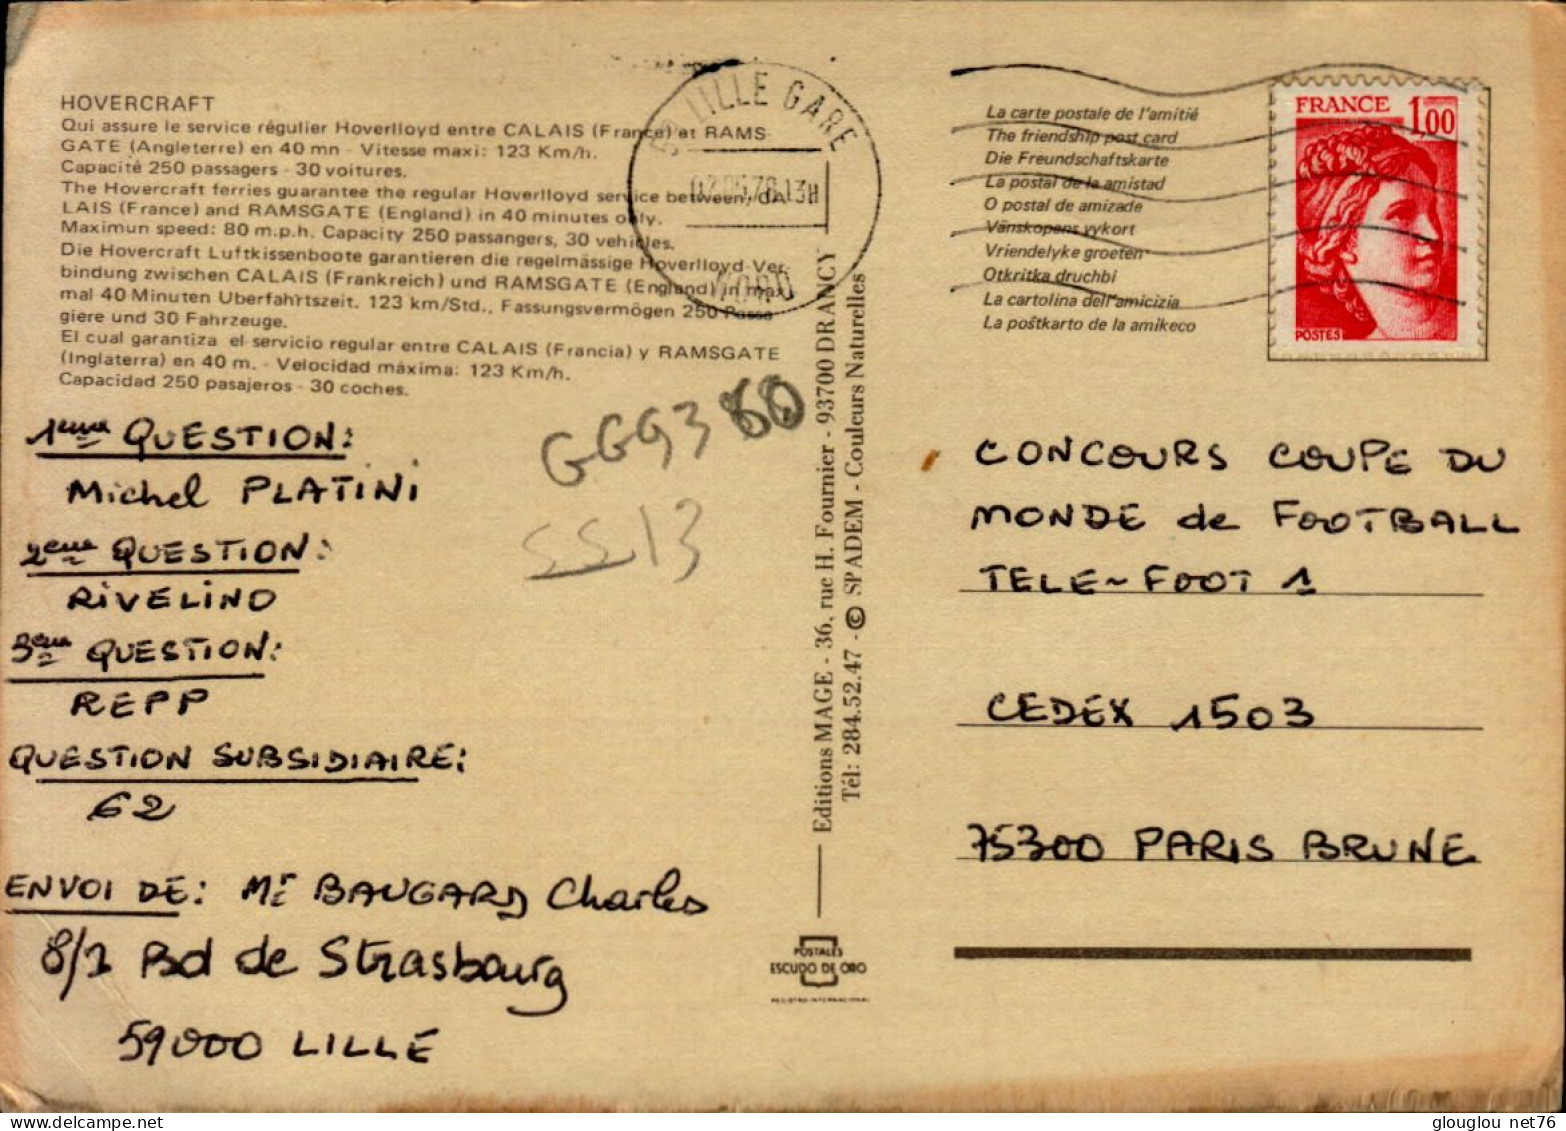 HOVERCRAFT
Qui assure le service régulier Hoverlloyd entre CALAIS (France) et RAMS-
GATE (Angleterre) en 40 mn - Vitesse maxi: 123 Km/h.
Capacité 250 passagers - 30 voitures.
The Hovercraft ferries guarantee the regular Hoverlloyd service between, CA-
LAIS (France) and RAMSGATE (England) in 40 minutes only.
Maximun speed: 80 m.p.h. Capacity 250 passangers, 30 vehicles.
Die Hovercraft Luftkissenboote garantieren die regelmässige Hoverlloyd-Ver-
bindung zwischen CALAIS (Frankreich) und RAMSGATE (England) in max.
mal 40 Minuten Uberfahrtszeit. 123 km/Std., Fassungsvermögen 250 Passa-
giere und 30 Fahrzeuge.
El cual garantiza el servicio regular entre CALAIS (Francia) y RAMSGATE
(Inglaterra) en 40 m. - Velocidad máxima: 123 Km/h.
Capacidad 250 pasajeros - 30 coches.
1eme QUESTION:
Michel PLATINI
2eme QUESTION:
RIVELINO
3eme QUESTION:
REPP
QUESTION SUBSIDIAIRE:
62
ENVOI DE: Mr BAUGARD Charles
8/1 Bd de Strasbourg
59000 LILLE
GGG3 80
SS13
LILLE GARE
.78.13H
NORD
Editions MAGE - 36, rue H. Fournier - 93700 DRANCY
Tél: 284.52.47 - © SPADEM - Couleurs Naturelles
POSTALES
ESCUDO DE ORO
REGISTRO INTERNACIONAL
La carte postale de l'amitié
The friendship post card
Die Freundschaftskarte
La postal de la amistad
O postal de amizade
Vänskopens vykort
Vriendelyke groeten
Otkritka druchbi
La cartolina dell'amicizia
La poŝtkarto de la amikeco
FRANCE 1,00
POSTES
CONCOURS COUPE DU
MONDE de FOOTBALL
TELE-FOOT 1
CEDEX 1503
75300 PARIS BRUNE
www.delcampe.net
glouglou_net76